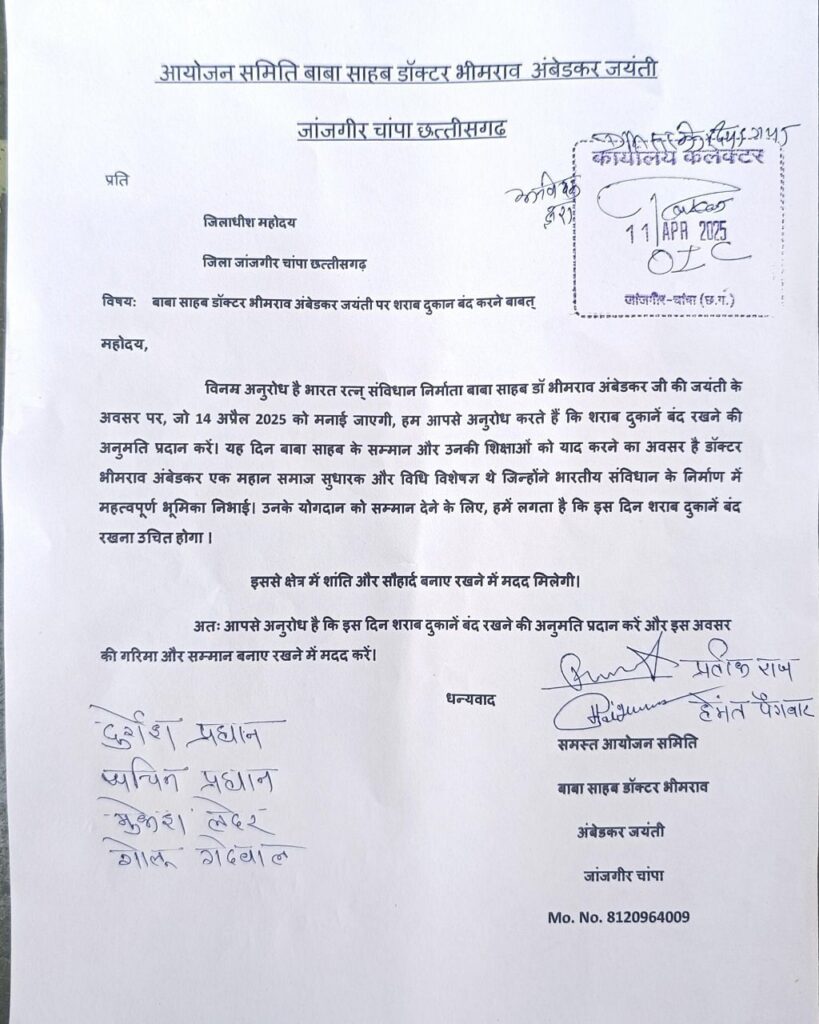 आयोजन समिति बाबा साहब डॉक्टर भीमराव अंबेडकर जयंती
जांजगीर चांपा छत्तीसगढ़
प्रति
कार्यालय कलेक्टर
11 APR 2025
OIC
जांजगीर-चांपा (छ.ग.)
जिलाधीश महोदय
जिला जांजगीर चांपा छत्तीसगढ़
विषयः बाबा साहब डॉक्टर भीमराव अंबेडकर जयंती पर शराब दुकान बंद करने बाबत्
महोदय,
विनम्र अनुरोध है भारत रत्न् संविधान निर्माता बाबा साहब डॉ भीमराव अंबेडकर जी की जयंती के
अवसर पर, जो 14 अप्रैल 2025 को मनाई जाएगी, हम आपसे अनुरोध करते हैं कि शराब दुकानें बंद रखने की
अनुमति प्रदान करें। यह दिन बाबा साहब के सम्मान और उनकी शिक्षाओं को याद करने का अवसर है डॉक्टर
भीमराव अंबेडकर एक महान समाज सुधारक और विधि विशेषज्ञ थे जिन्होंने भारतीय संविधान के निर्माण में
महत्वपूर्ण भूमिका निभाई। उनके योगदान को सम्मान देने के लिए, हमें लगता है कि इस दिन शराब दुकानें बंद
रखना उचित होगा ।
इससे क्षेत्र में शांति और सौहार्द बनाए रखने में मदद मिलेगी।
अतः आपसे अनुरोध है कि इस दिन शराब दुकानें बंद रखने की अनुमति प्रदान करें और इस अवसर
की गरिमा और सम्मान बनाए रखने में मदद करें।
धन्यवाद
प्रतीक राज
हेमंत पैगवार
समस्त आयोजन समिति
बाबा साहब डॉक्टर भीमराव
अंबेडकर जयंती
जांजगीर चांपा
Mo. No. 8120964009
दुर्गेश प्रधान
सचिन प्रधान
मुकेश लदेर
गोलू गढेवाल